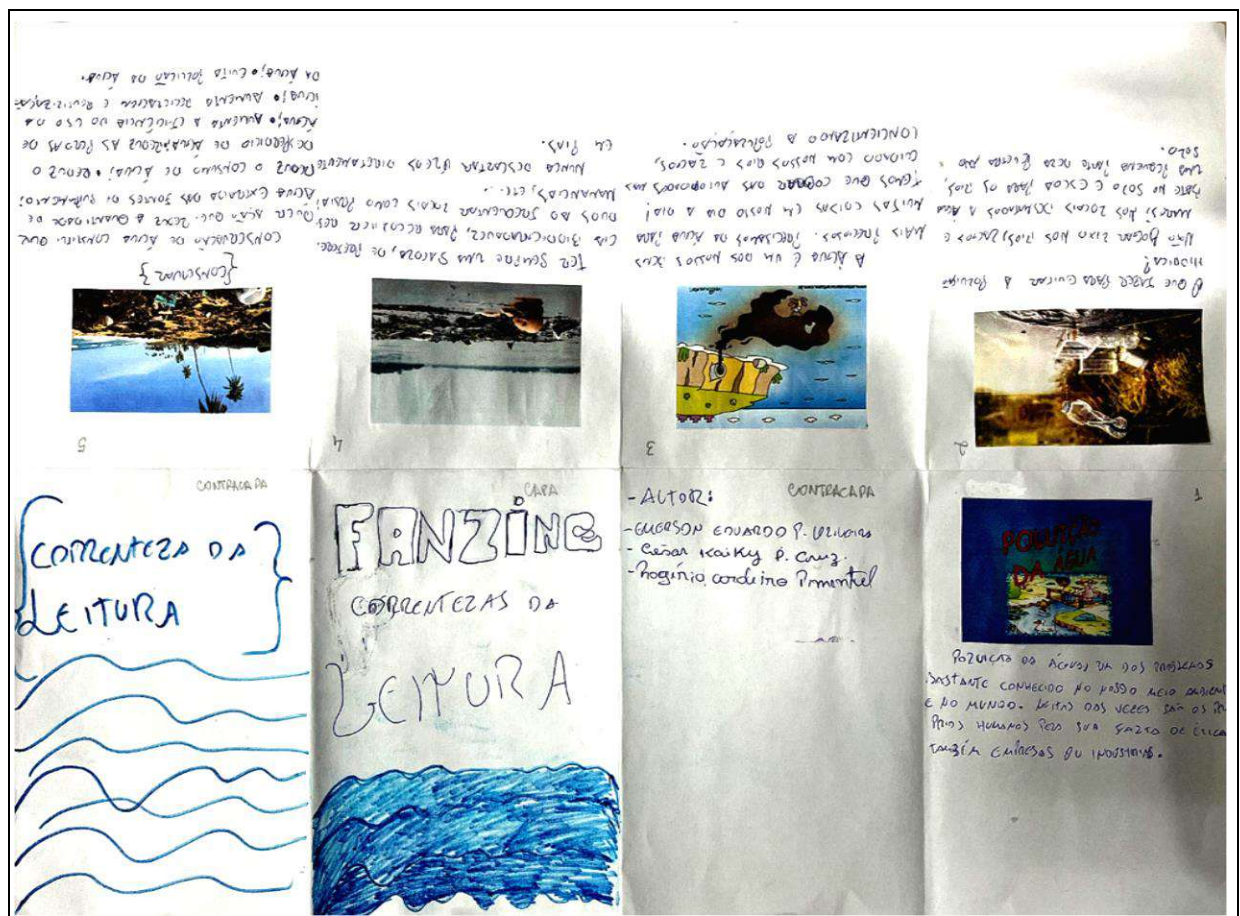 CONTRACAPA
{CORRENTEZA DA
LEITURA}
CAPA
FANZINE
CORRENTEZAS DA
LEITURA
CONTRACAPA
- AUTOR:
- EMERSON EDUARDO P.
- César Kaiky P. Cruz.
- Rogério cordeiro Pimentel
1
POLUIÇÃO
DA ÁGUA
POLUIÇÃO DA ÁGUA; UM DOS PROBLEMAS
BASTANTE CONHECIDO NO NOSSO MEIO AMBIENT
E NO MUNDO. MUITAS DAS VEZES SÃO OS PRÓ
PRIOS HUMANOS PELA SUA FALTA DE ÉTICA
TAMBÉM EMPRESAS OU INDUSTRIAS.
2
O QUE FAZER PARA EVITAR A POLUIÇÃO
HIDRICA?
NÃO JOGAR LIXO NOS RIOS, LAGOS E
MARES; NOS LOCAIS A ÁGUA
NO SOLO E ESCOA PARA OS RIOS,
UMA PEQUENA PARTE DELA
SOLO.
3
A ÁGUA É UM DOS NOSSOS BENS
MAIS PRECIOSOS. PRECISAMOS DA ÁGUA PARA
MUITAS COISAS EM NOSSO DIA A DIA!
TEMOS QUE COBRAR DAS AUTORIDADES MAIS
CUIDADO COM NOSSOS RIOS E LAGOS,
CONCIENTIZANDO A POPULAÇÃO.
4
TER SEMPRE UMA SACOLA, DE PREFERÊN
CIA BIODEGRADAVEL, PARA RECOLHER RESÍ
DUOS AO FREQUENTAR LOCAIS COMO PRAIAS,
MANANCIAIS, ETC...
NUNCA DESCARTAR ÓLEOS DIRETAMENTE
EM PIAS.
5
{CONSERVAR}
CONSERVAÇÃO DE ÁGUA CONSISTI QUAL
QUER AÇÃO QUE: REDUZ A QUANTIDADE DE
ÁGUA EXTRAIDA DAS FONTES DE SUPRIMENTO;
REDUZ O CONSUMO DE ÁGUA; • REDUZ O
DESPERDICIO DE ÁGUA; REDUZ AS PERDAS DE
ÁGUA; • AUMENTA A EFICIÊNCIA DO USO DA
ÁGUA; • AUMENTA RECICLAGEM E REUTILIZAÇÃO
DA ÁGUA; • EVITA POLUIÇÃO DA ÁGUA.